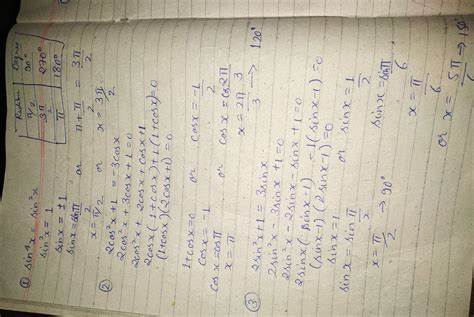 Radian Degree
π/2 90°
3π/2 270°
π 180°
① sin⁴x = sin²x
sin²x = 1
sinx = ±1
sinx = sin π/2 or π + π/2 = 3π/2
x = π/2 or x = 3π/2
② 2cos²x + 1 = -3cosx
2cos²x + 3cosx + 1 = 0
2cos²x + 2cosx + cosx + 1
2cosx(1+cosx) + 1(1+cosx) = 0
(1+cosx)(2cosx+1) = 0
1+cosx = 0 or cosx = -1/2
cosx = -1
cosx = cosπ or cosx = cos 2π/3
x = π x = 2π/3 → 120°
③ 2sin²x + 1 = 3sinx
2sin²x - 3sinx + 1 = 0
2sin²x - 2sinx - sinx + 1 = 0
2sinx(sinx-1) - 1(sinx-1) = 0
(sinx-1)(2sinx-1) = 0
sinx = 1 or sinx = 1/2
sinx = sin π/2 sinx = sin π/6
x = π/2 → 90° x = π/6
or x = 5π/6 → 150°